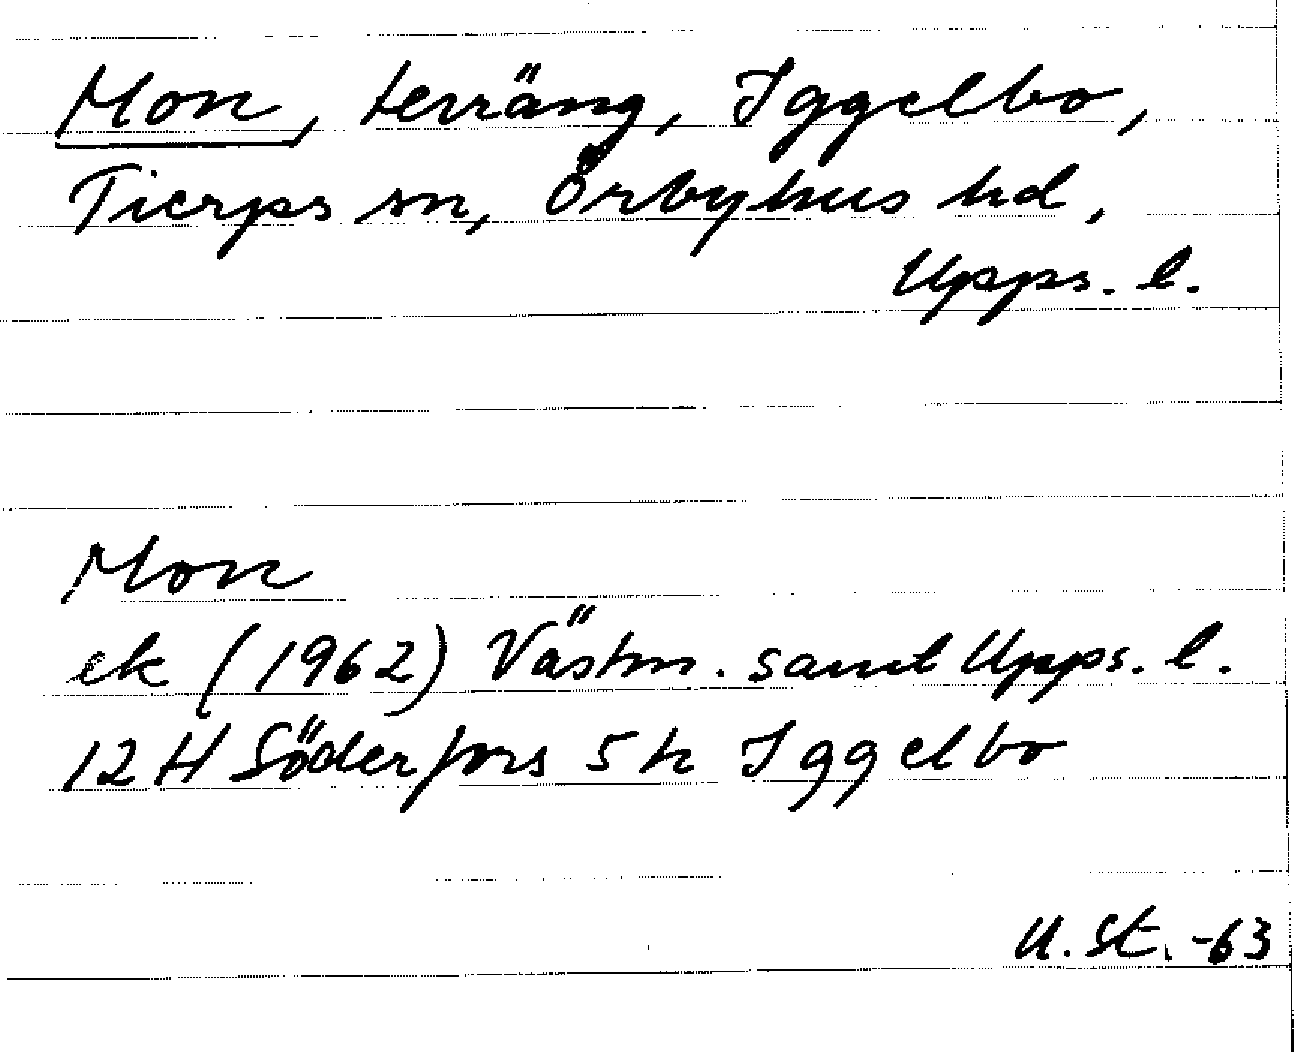 Mon, terräng, Iggelbo,
Tierps sn, Örbyhus hd,
Upps. l.
Mon
ek (1962) Västm. samt Upps. l.
12 H Söderfors 5 h Iggelbo
U. St. -63